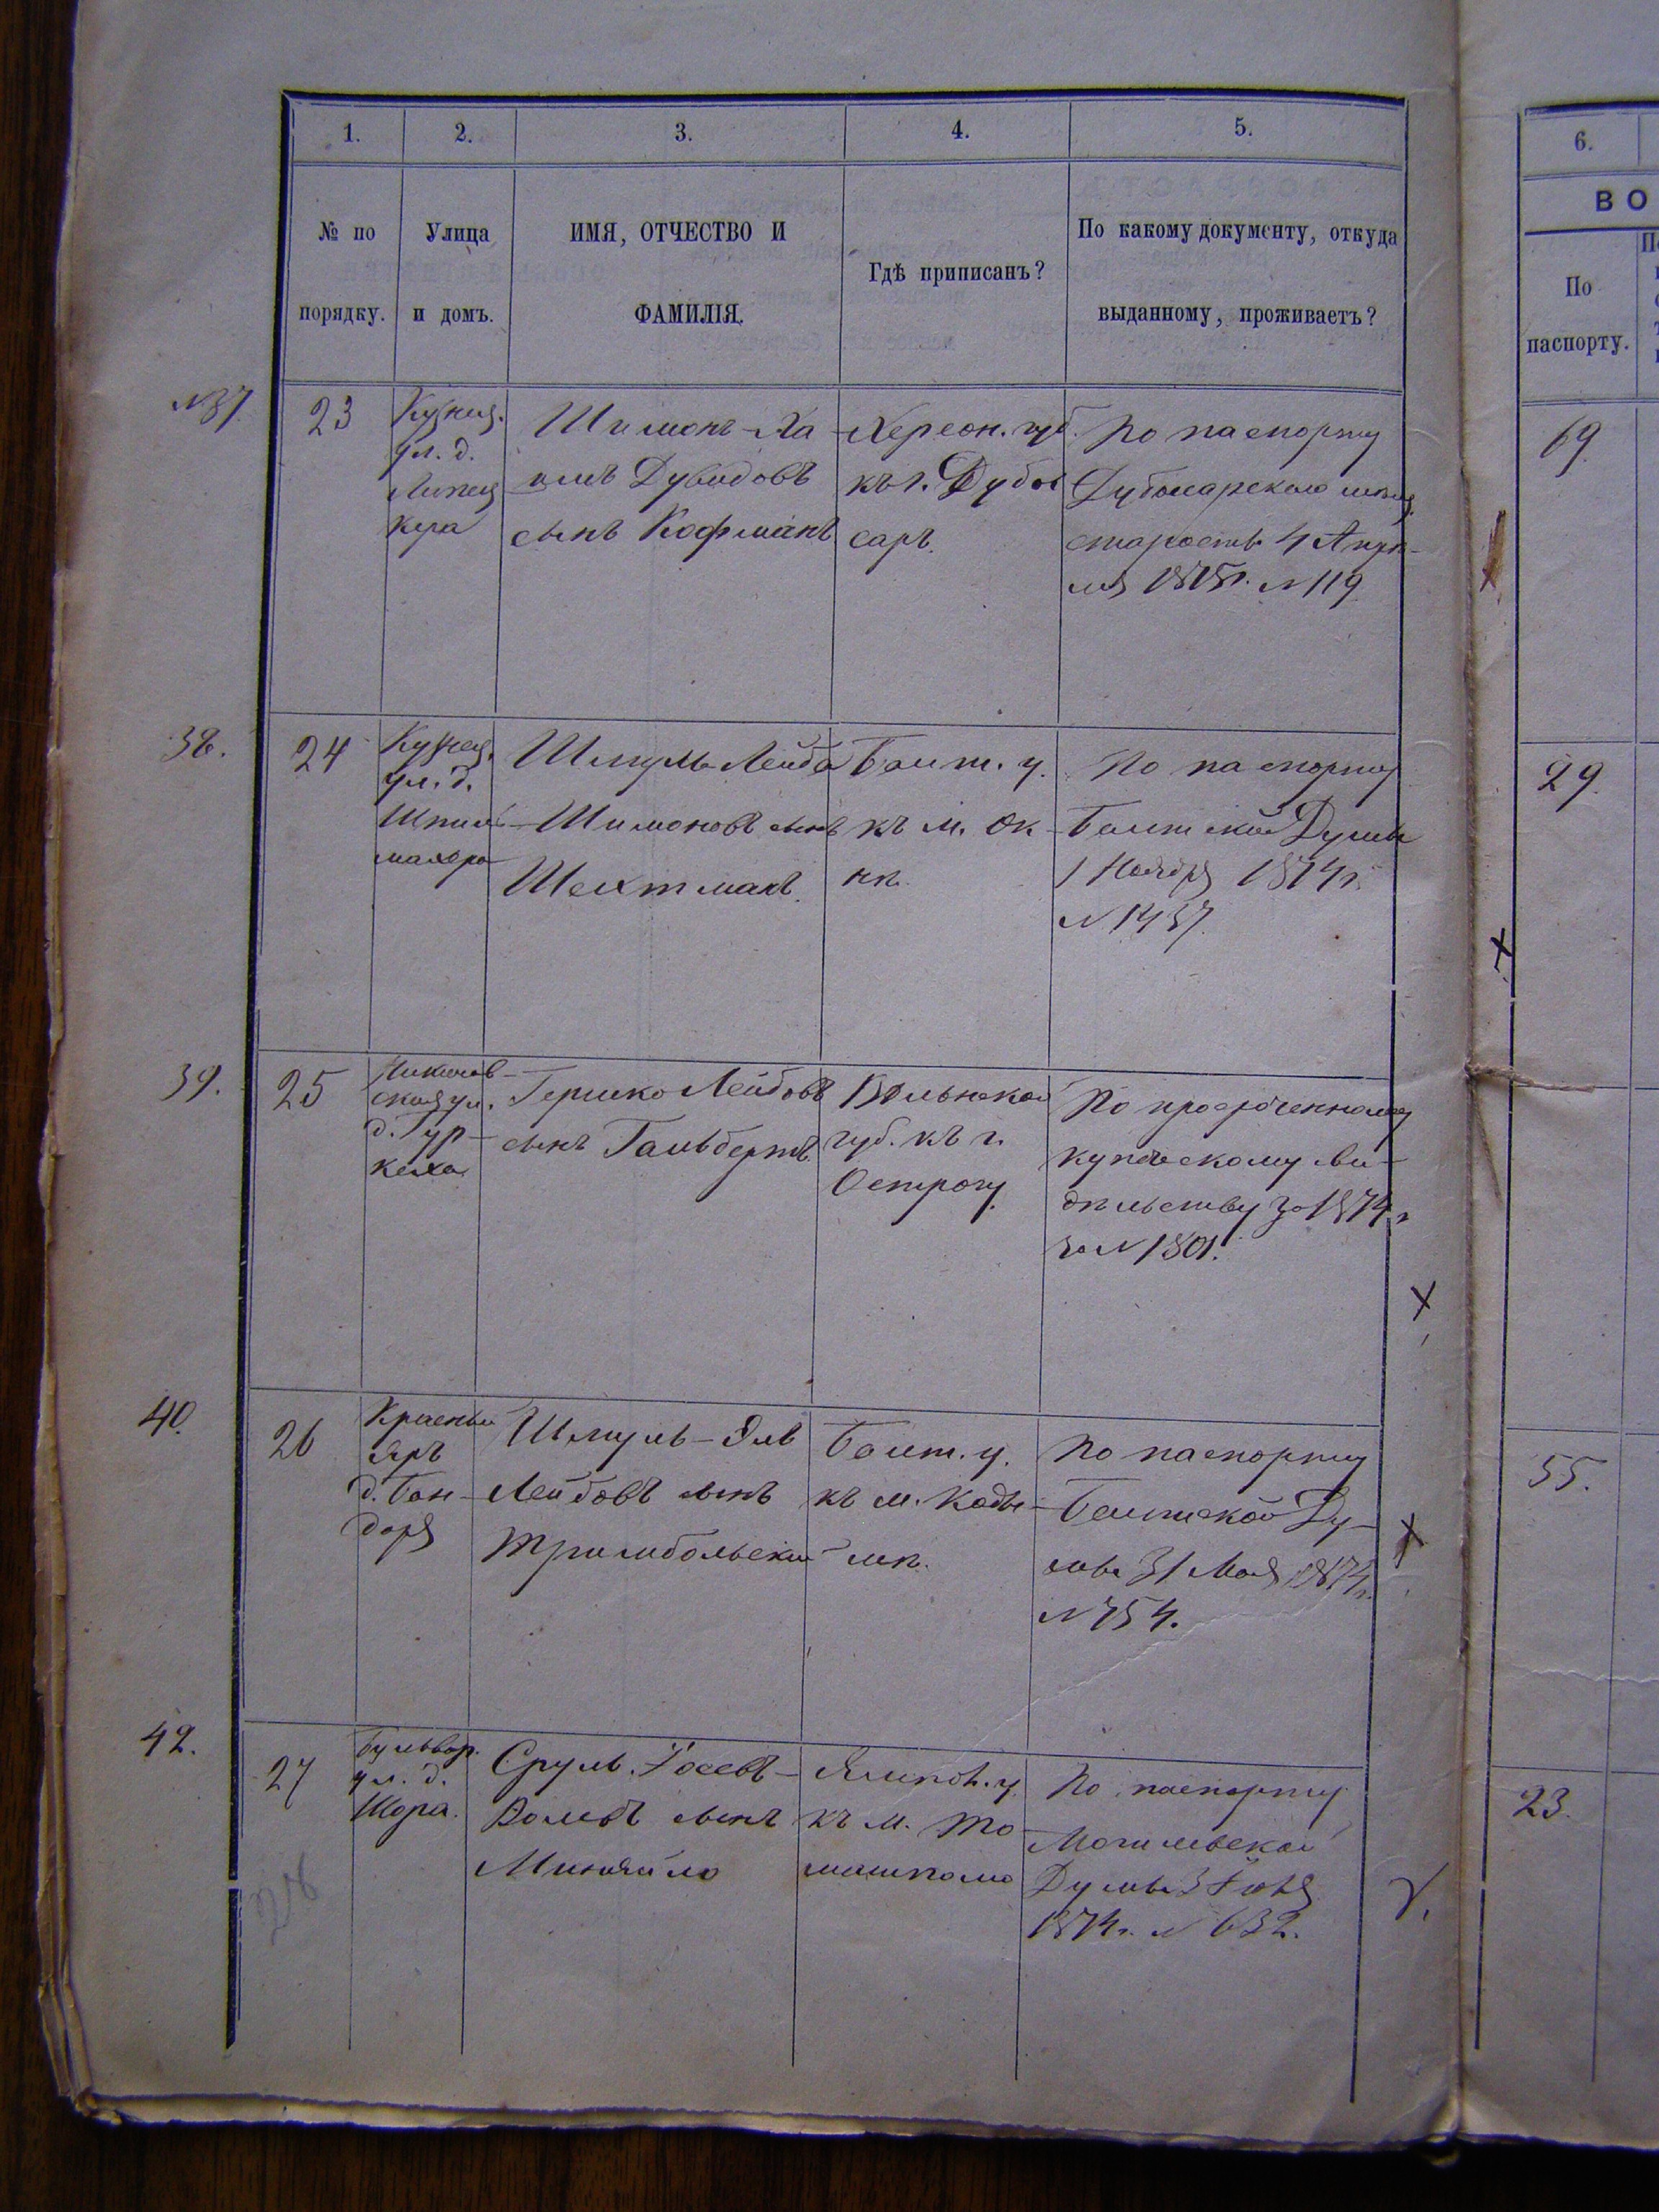 1. 2. 3. 4. 5. 6.
№ по порядку.
Улица и домъ.
ИМЯ, ОТЧЕСТВО И
ФАМИЛІЯ.
Гдѣ приписанъ?
По какому документу, откуда
выданному, проживаетъ?
ВО
По
паспорту.
№37
23
Кузнеч.
ул. д.
Липец
кера
Шимонъ-Ха
имъ Дувидовъ
сынъ Кофманъ
Херсон. губ.
къ г. Дубос
саръ.
По паспорту
Дубосарскаго мѣщ.
старосты 4 Апрѣ-
ля 1875г. №119
69
38.
24
Кузнеч.
ул. д.
Шпил
Шмуль Лейба
Шимоновъ сынъ
Шехтманъ.
Балт. у.
къ м. Ок
нѣ.
По паспорту
Балтской Думы
1 Ноября 1874г.
№1437.
29.
39.
25
Николаев
ская ул.
д. Гур-
Гершко Лейбовъ
сынъ Гальбертъ.
Волынской
губ. къ г.
Острогу.
По просроченному
купеческому сви-
дѣтельству за 1874г
за №1801.
40.
26
Красный
Яръ
д. Бон-
даря
Шмуль-Эль
Лейбовъ сынъ
Тримбольскій
Балт. у.
къ м. Коды-
мѣ.
По паспорту
Балтской Ду-
мы 31 Мая 1874г.
№754.
55.
42.
27
Бульвар.
ул. д.
Шора.
Сруль. Іосевъ-
сынъ
Миняйло
Ямпол. у.
къ м. То
машполю
По паспорту
Могилевской
Думы 3 Іюня
1874г. № 632.
23.
28